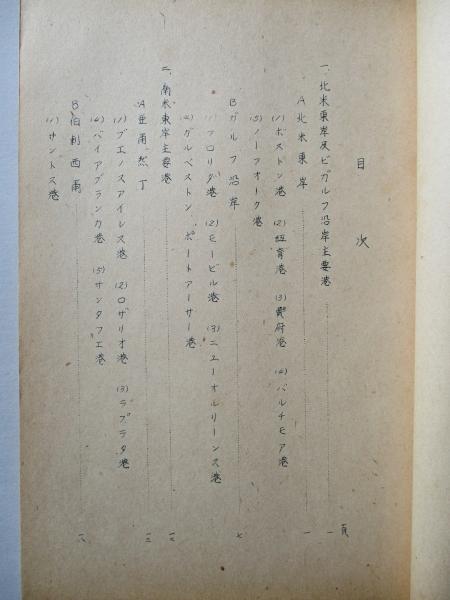 目次
頁
一、北米東岸及ビガルフ沿岸主要港 一
A 北米東岸 一
(1) ボストン港 (2) 紐育港 (3) 費府港 (4) バルチモア港
(5) ノーフオーク港
B ガルフ沿岸 七
(1) フロリダ港 (2) モービル港 (3) ニューオルリーンス港
(4) ガルベストン ポートアーサー港
二、南米東岸主要港 一二
A 亜爾然丁 一三
(1) ブエノスアイレス港 (2) ロザリオ港 (3) ラプラタ港
(4) バイアブランカ港 (5) サンタフエ港
B 伯剌西爾 一八
(1) サントス港